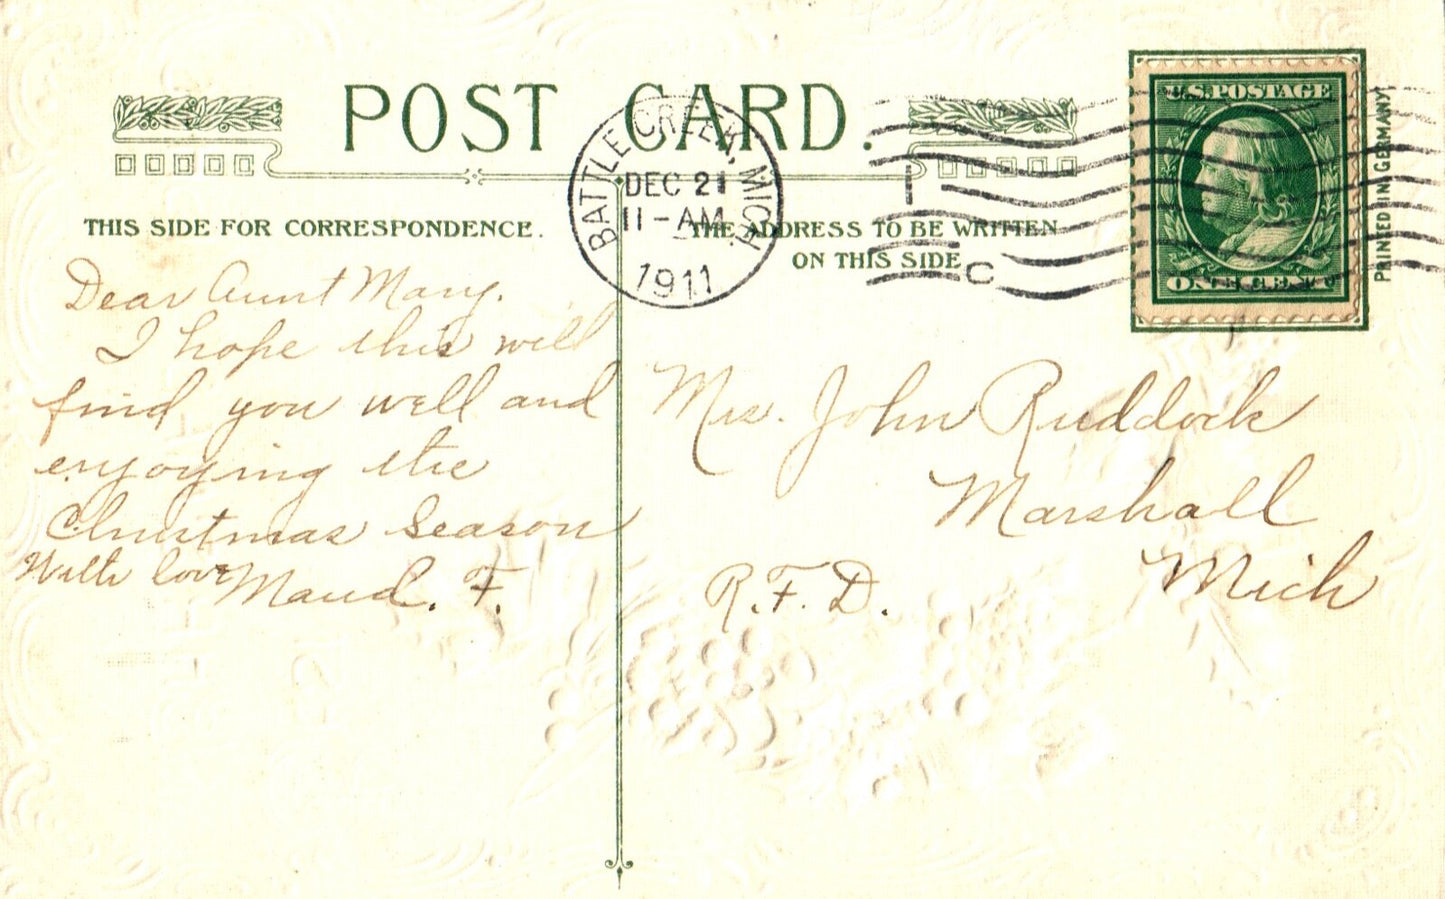 POST CARD.
BATTLE CREEK, MICH.
DEC 21
11-AM
1911
1
C
U.S. POSTAGE
ONE CENT
PRINTED IN GERMANY
THIS SIDE FOR CORRESPONDENCE.
THE ADDRESS TO BE WRITTEN
ON THIS SIDE
Dear Aunt Mary.
I hope this will
find you well and
enjoying the
Christmas Season
With love Maud. F.
Mrs. John Ruddock
Marshall
Mich
R.F.D.